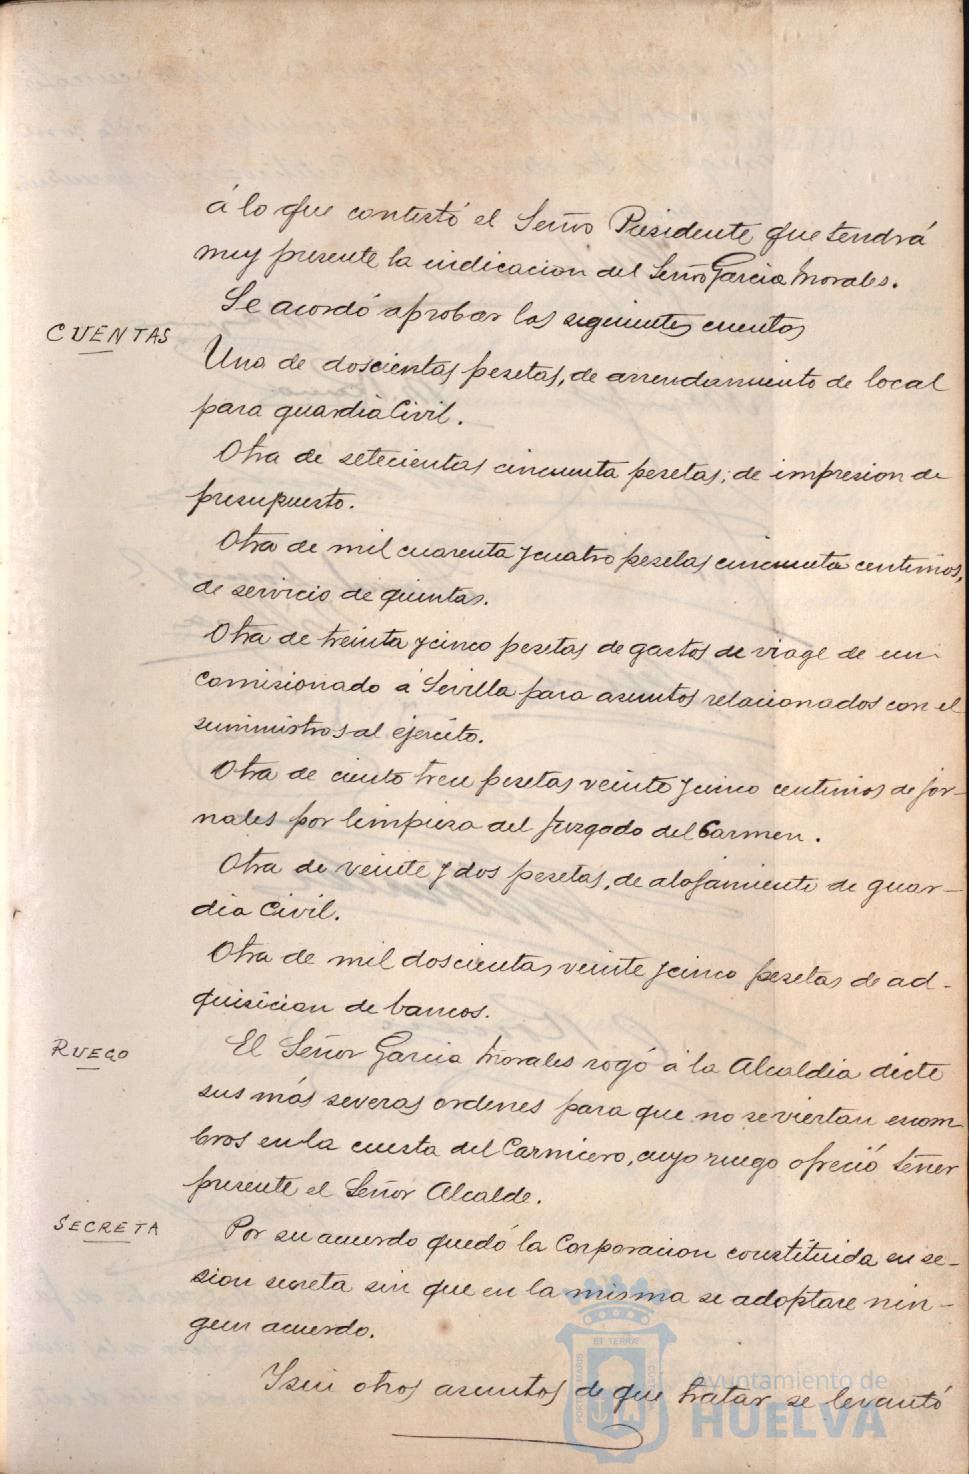 á lo que contestó el Señor Presidente que tendrá
muy presente la indicacion del Señor Garcia Morales.
Se acordó aprobar las siguientes cuentas
CUENTAS
Una de doscientas pesetas, de arrendamiento de local
para guardia Civil.
Otra de setecientas cincuenta pesetas, de impresion de
presupuesto.
Otra de mil cuarenta y cuatro pesetas cincuenta centimos,
de servicio de quintas.
Otra de treinta y cinco pesetas de gastos de viage de un
comisionado a Sevilla para asuntos relacionados con el
suministros al ejército.
Otra de ciento trece pesetas veinte y cinco centimos de jor-
nales por limpieza del Juzgado del Carmen.
Otra de veinte y dos pesetas, de alojamiento de guar-
dia Civil.
Otra de mil doscientas veinte y cinco pesetas de ad-
quisicion de bancos.
RUEGO
El Señor Garcia Morales rogó á la Alcaldia dicte
sus más severas ordenes para que no se viertan escom-
bros en la cuesta del Carnicero, cuyo ruego ofreció tener
presente el Señor Alcalde.
SECRETA
Por su acuerdo quedó la Corporacion constituida en se-
sion secreta sin que en la misma se adoptare nin-
gun acuerdo.
Y sin otros asuntos de que tratar se levantó
PORTUS MARIS
ET TERRAE
CUSTODIA
Ayuntamiento de
HUELVA